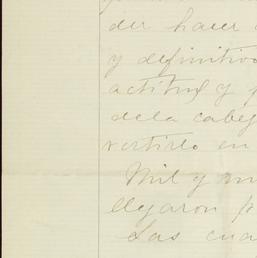 der hacer
y definitivo
actitud y
de la cabe
vertirlo en
Mil y
llegaron p
Las cua